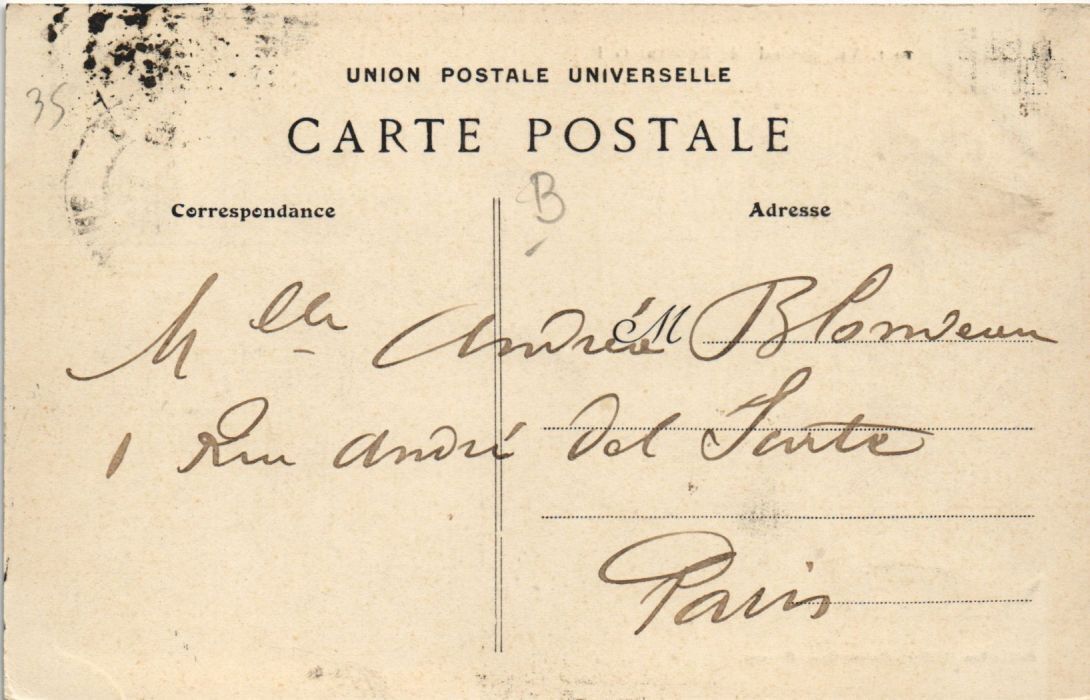 UNION POSTALE UNIVERSELLE
35
CARTE POSTALE
B
Correspondance
Adresse
M
Mlle Andrée Blondeau
1 Rue André del Sarte
Paris